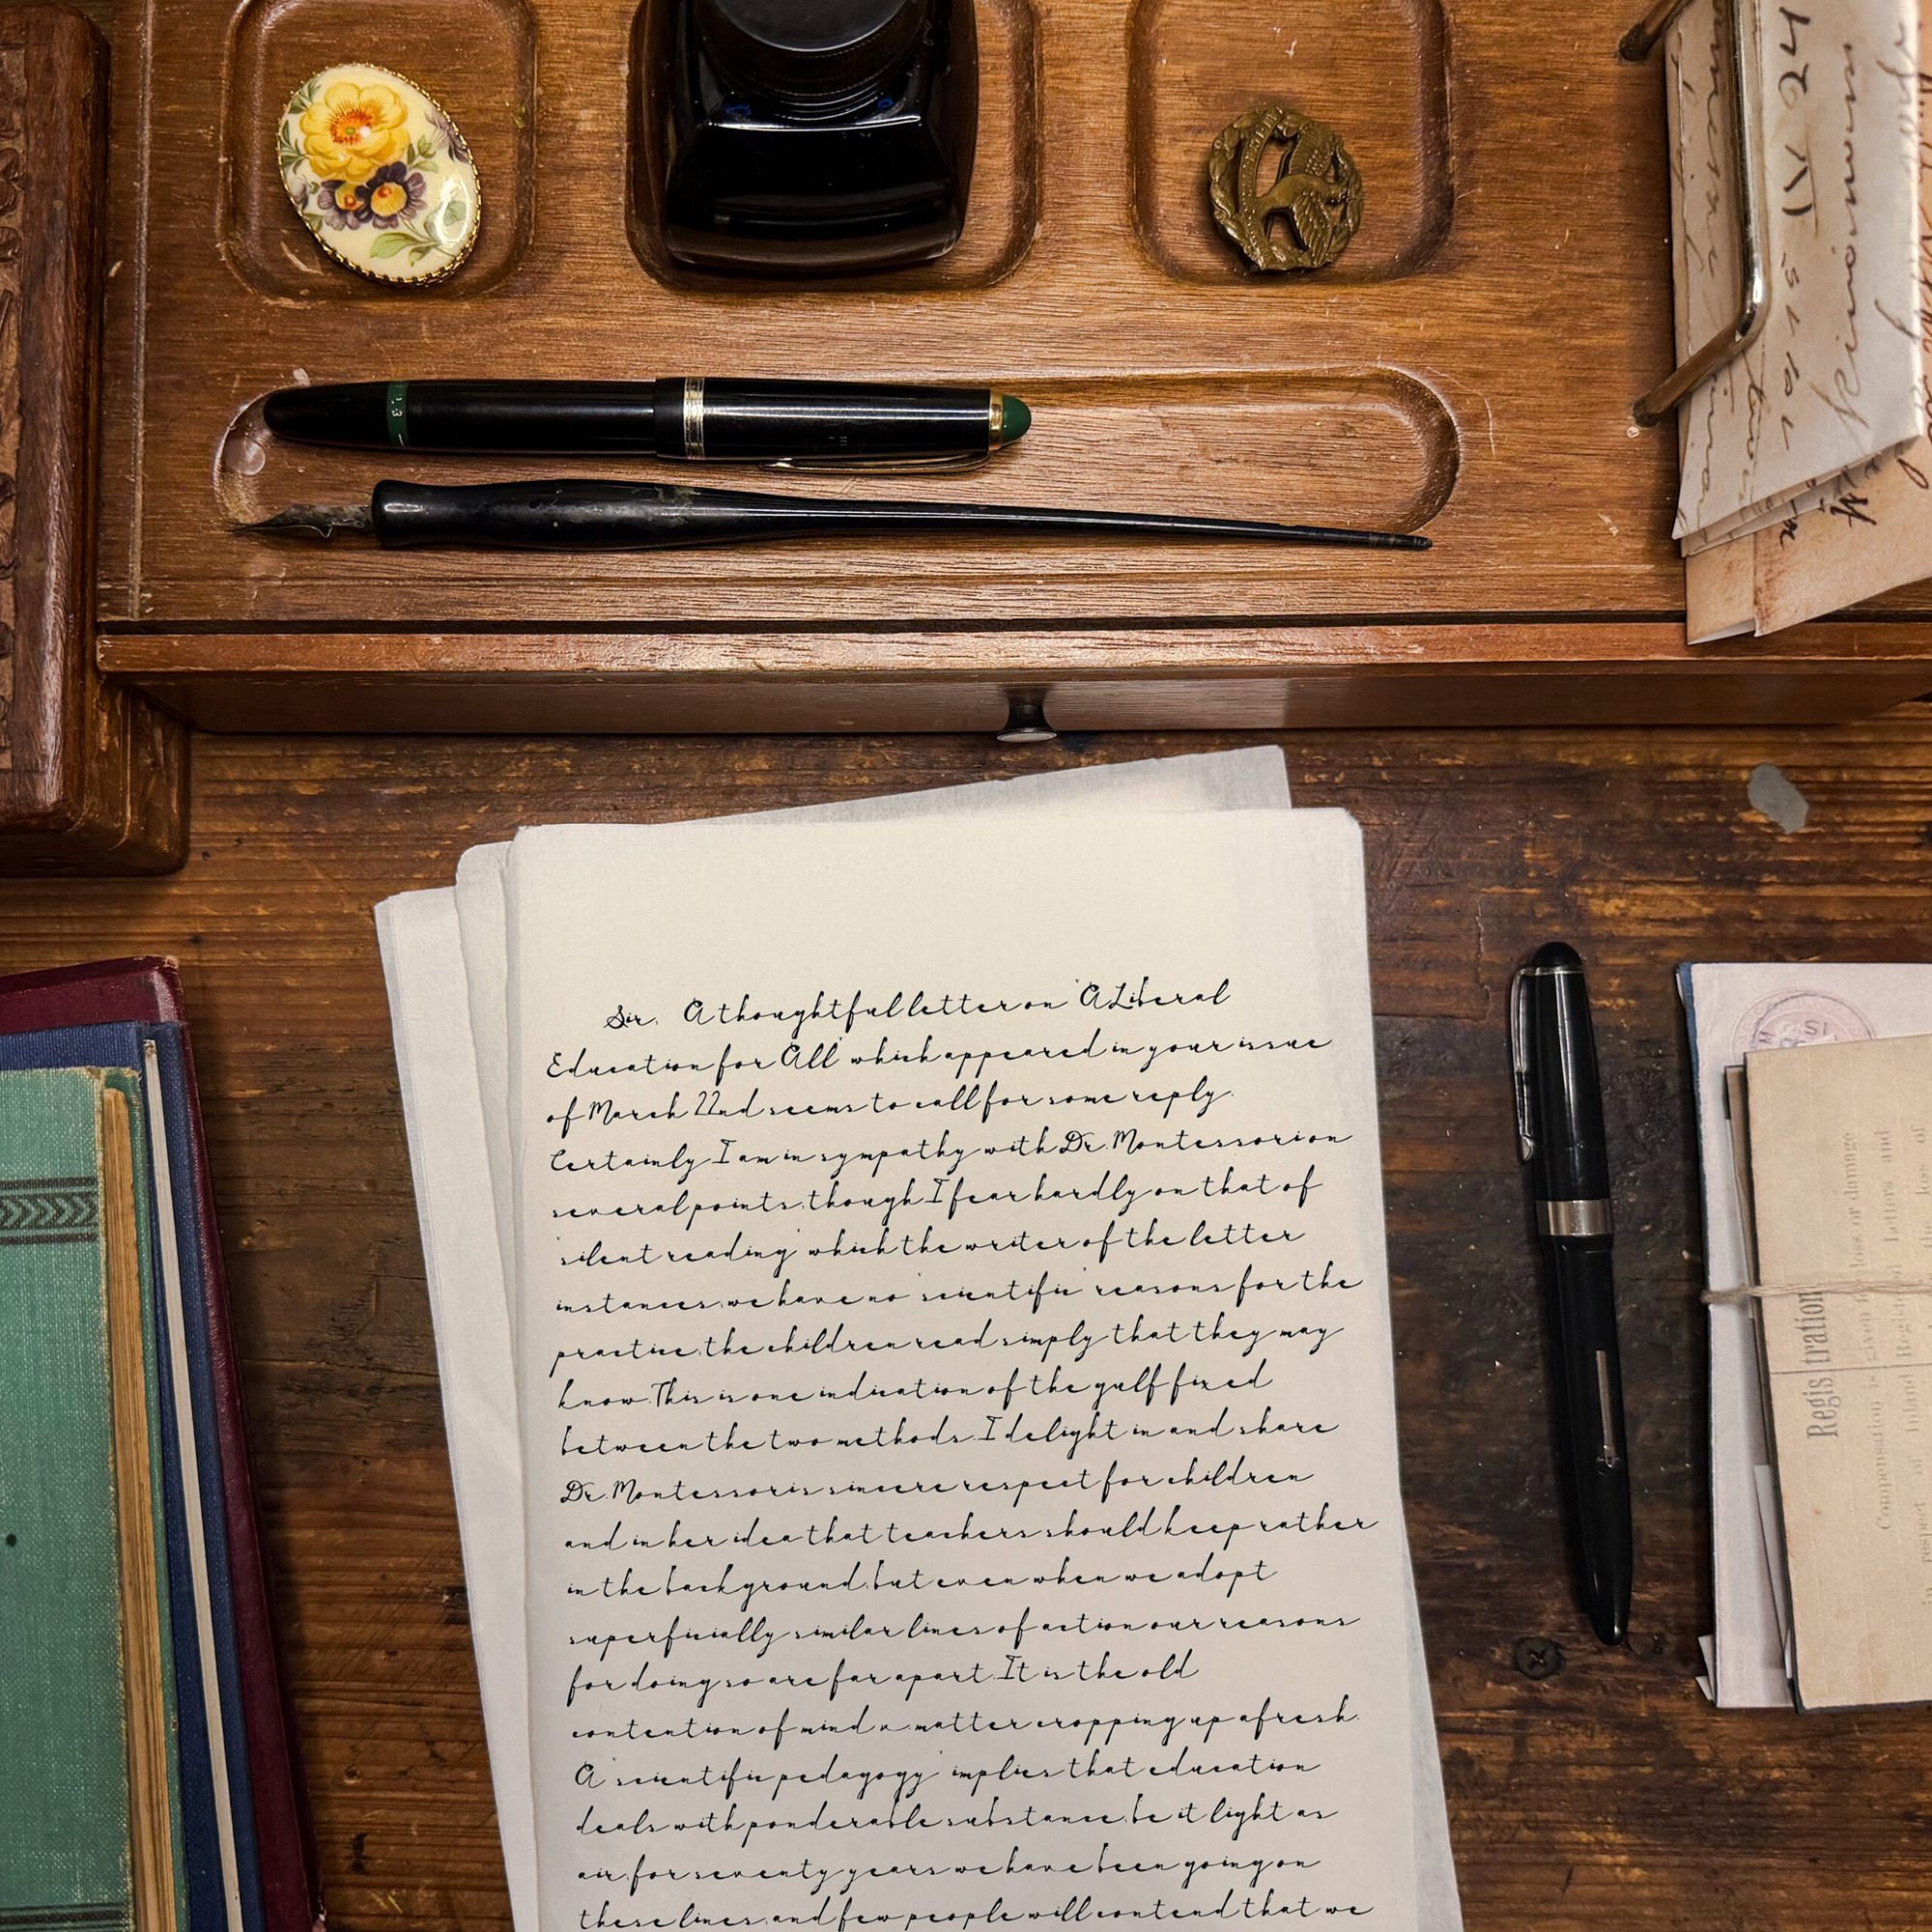 Sir, A thoughtful letter on "A Liberal
Education for All" which appeared in your issue
of March 22nd seems to call for some reply.
Certainly I am in sympathy with Dr. Montessori on
several points, though I fear hardly on that of
"silent reading" which the writer of the letter
instances; we have no "scientific" reasons for the
practice; the children read simply that they may
know. This is one indication of the gulf fixed
between the two methods. I delight in and share
Dr. Montessori's sincere respect for children
and in her idea that teachers should keep rather
in the background; but even when we adopt
superficially similar lines of action our reasons
for doing so are far apart. It is the old
contention of mind v. matter cropping up afresh.
A "scientific pedagogy" implies that education
deals with ponderable substance, be it light as
air; for seventy years we have been going on
these lines, and few people will contend that we
Registration
Compensation is given for loss or damage
Inland Registered Letters and